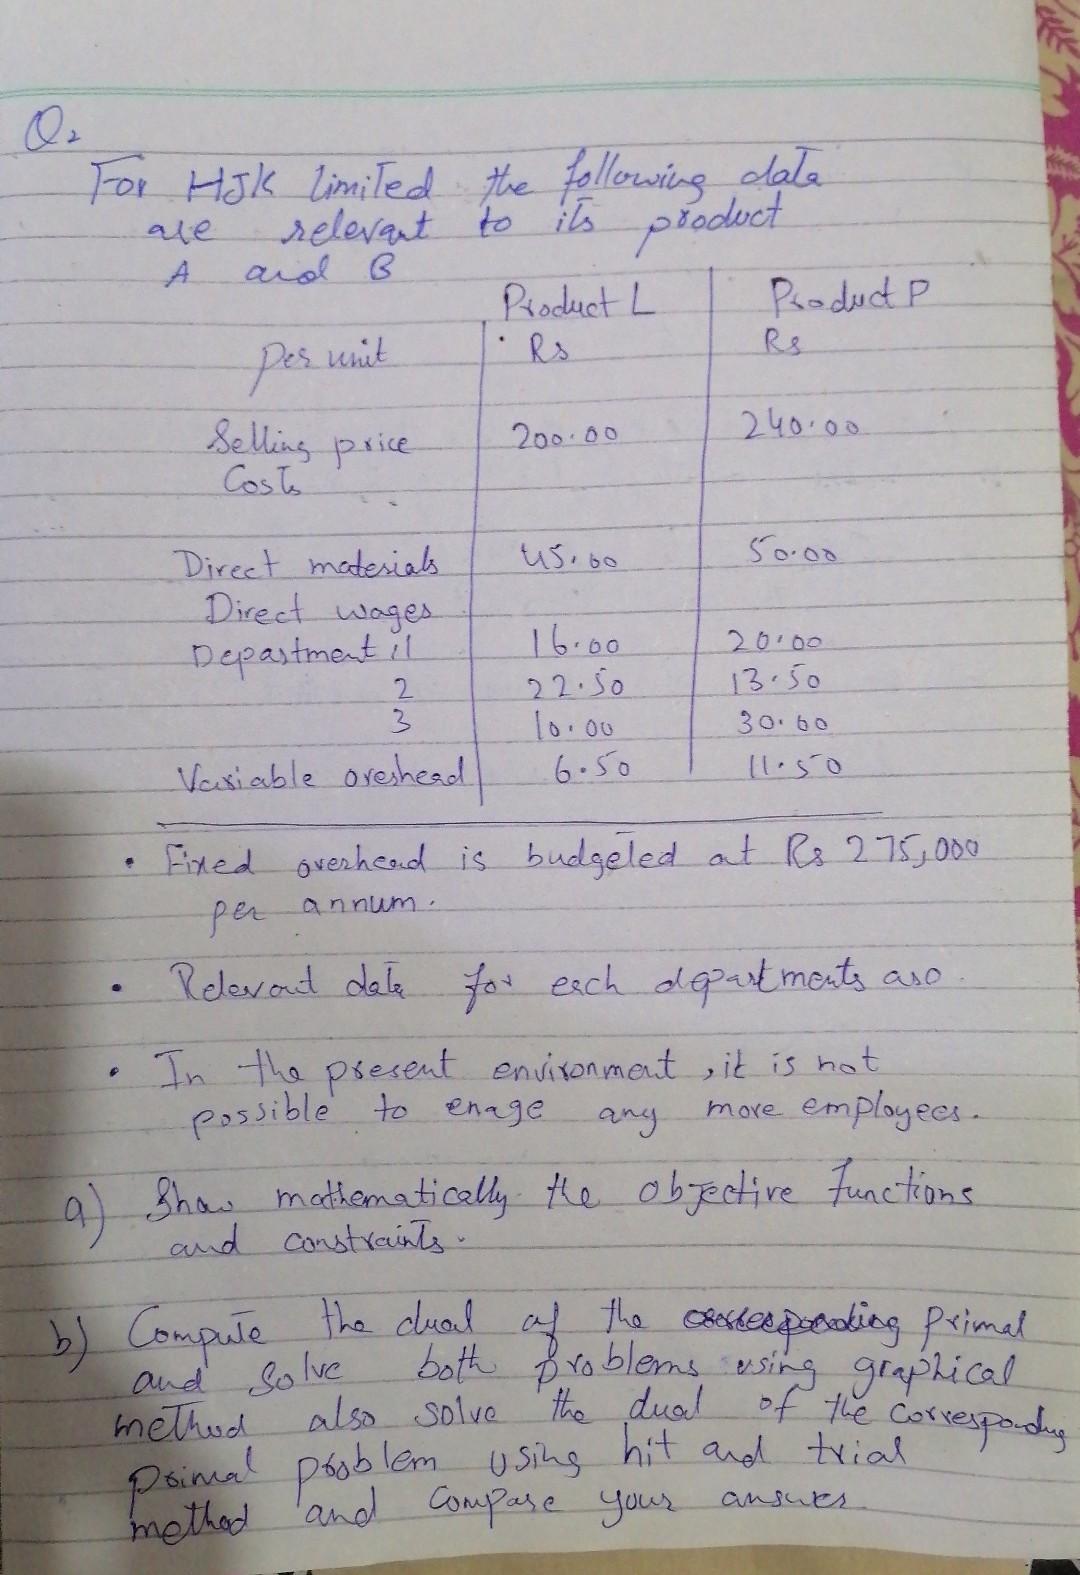 Q2
For HJK limited the following data
are relevant to its product
A and B
Product L Product P
per unit Rs Rs
Selling price 200.00 240.00
Costs
Direct materials 45.00 50.00
Direct wages
Department 1 16.00 20.00
2 22.50 13.50
3 10.00 30.00
Variable overhead 6.50 11.50
• Fixed overhead is budgeted at Rs 275,000
per annum.
• Relevant data for each departments are
• In the present environment, it is not
possible to enage any more employees.
a) Show mathematically the objective functions
and constraints.
b) Compute the dual of the primal
and solve both problems using graphical
method also solve the dual of the corresponding
primal problem using hit and trial
method and compare your answer